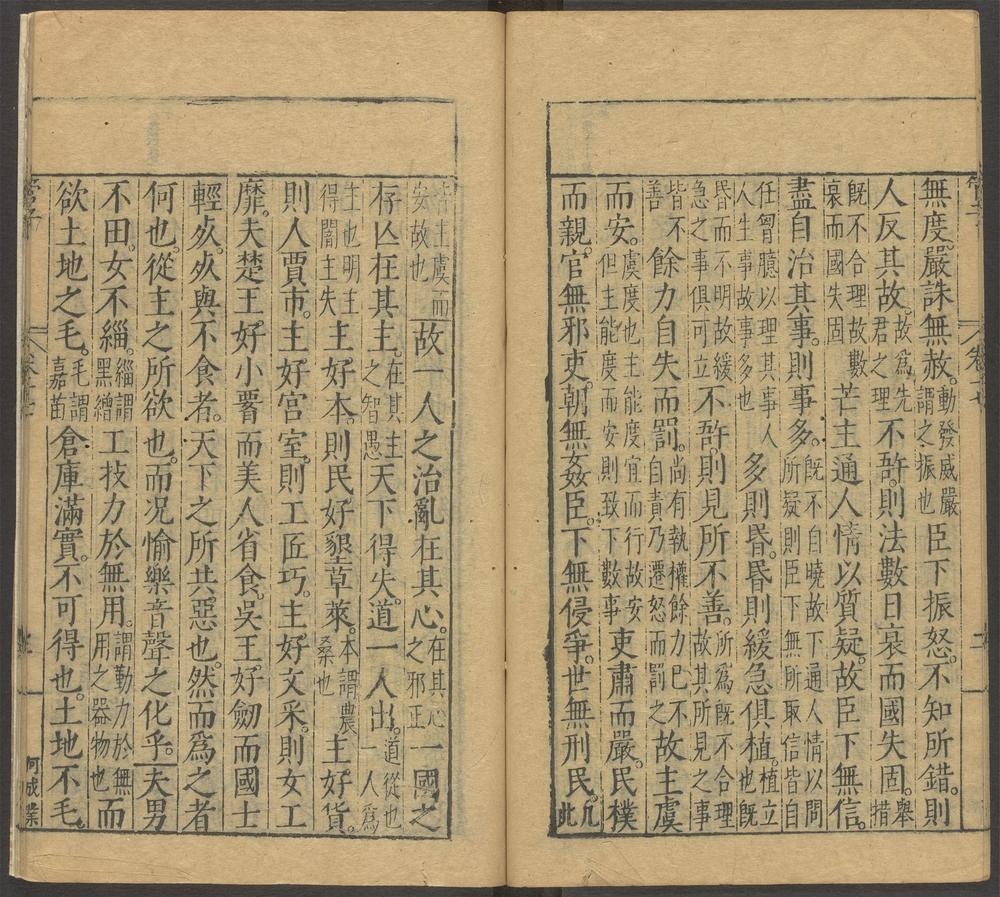 管子 卷十七 二
無度。嚴誅無赦。動發威嚴謂之振也臣下振怒。不知所錯。則
人反其故。故為先君之理不誶。則法數日衰而國失固。舉措
既不合理故數衰而國失固芒主通人情以質疑。故臣下無信。
盡自治其事。則事多。既不自曉故下通人情以問所疑則臣下無所取信皆自
任胷臆以理其事人人生事故事多也多則昏。昏則緩急俱植。植立也既
昏而不明故緩急之事俱可立不誶。則見所不善。所為既不合理故其所見之事
皆不善餘力自失而罰。尚有執權餘力已不自責乃遷怒而罰之故主虞
而安。虞度也主能度宜而行故安但主能度而安則致下數事吏肅而嚴。民樸
而親。官無邪吏。朝無姦臣。下無侵爭。世無刑民。凡此
皆主虞而安故也故一人之治亂在其心。在其心之邪正一國之
存亾在其主。在其主之智愚天下得失。道一人出。道從也一人為
主也明主得闇主失主好本。則民好墾草萊。本謂農桑也主好貨。
則人賈市。主好宮室。則工匠巧。主好文采。則女工
靡。夫楚王好小署而美人省食。吳王好劒而國士
輕死。死與不食者。天下之所共惡也。然而為之者
何也。從主之所欲也。而况愉樂音聲之化乎。夫男
不田。女不緇。緇謂黑繒工技力於無用。謂勤力於無用之器物也而
欲土地之毛。毛謂嘉苗倉庫滿實。不可得也。土地不毛。
何成業